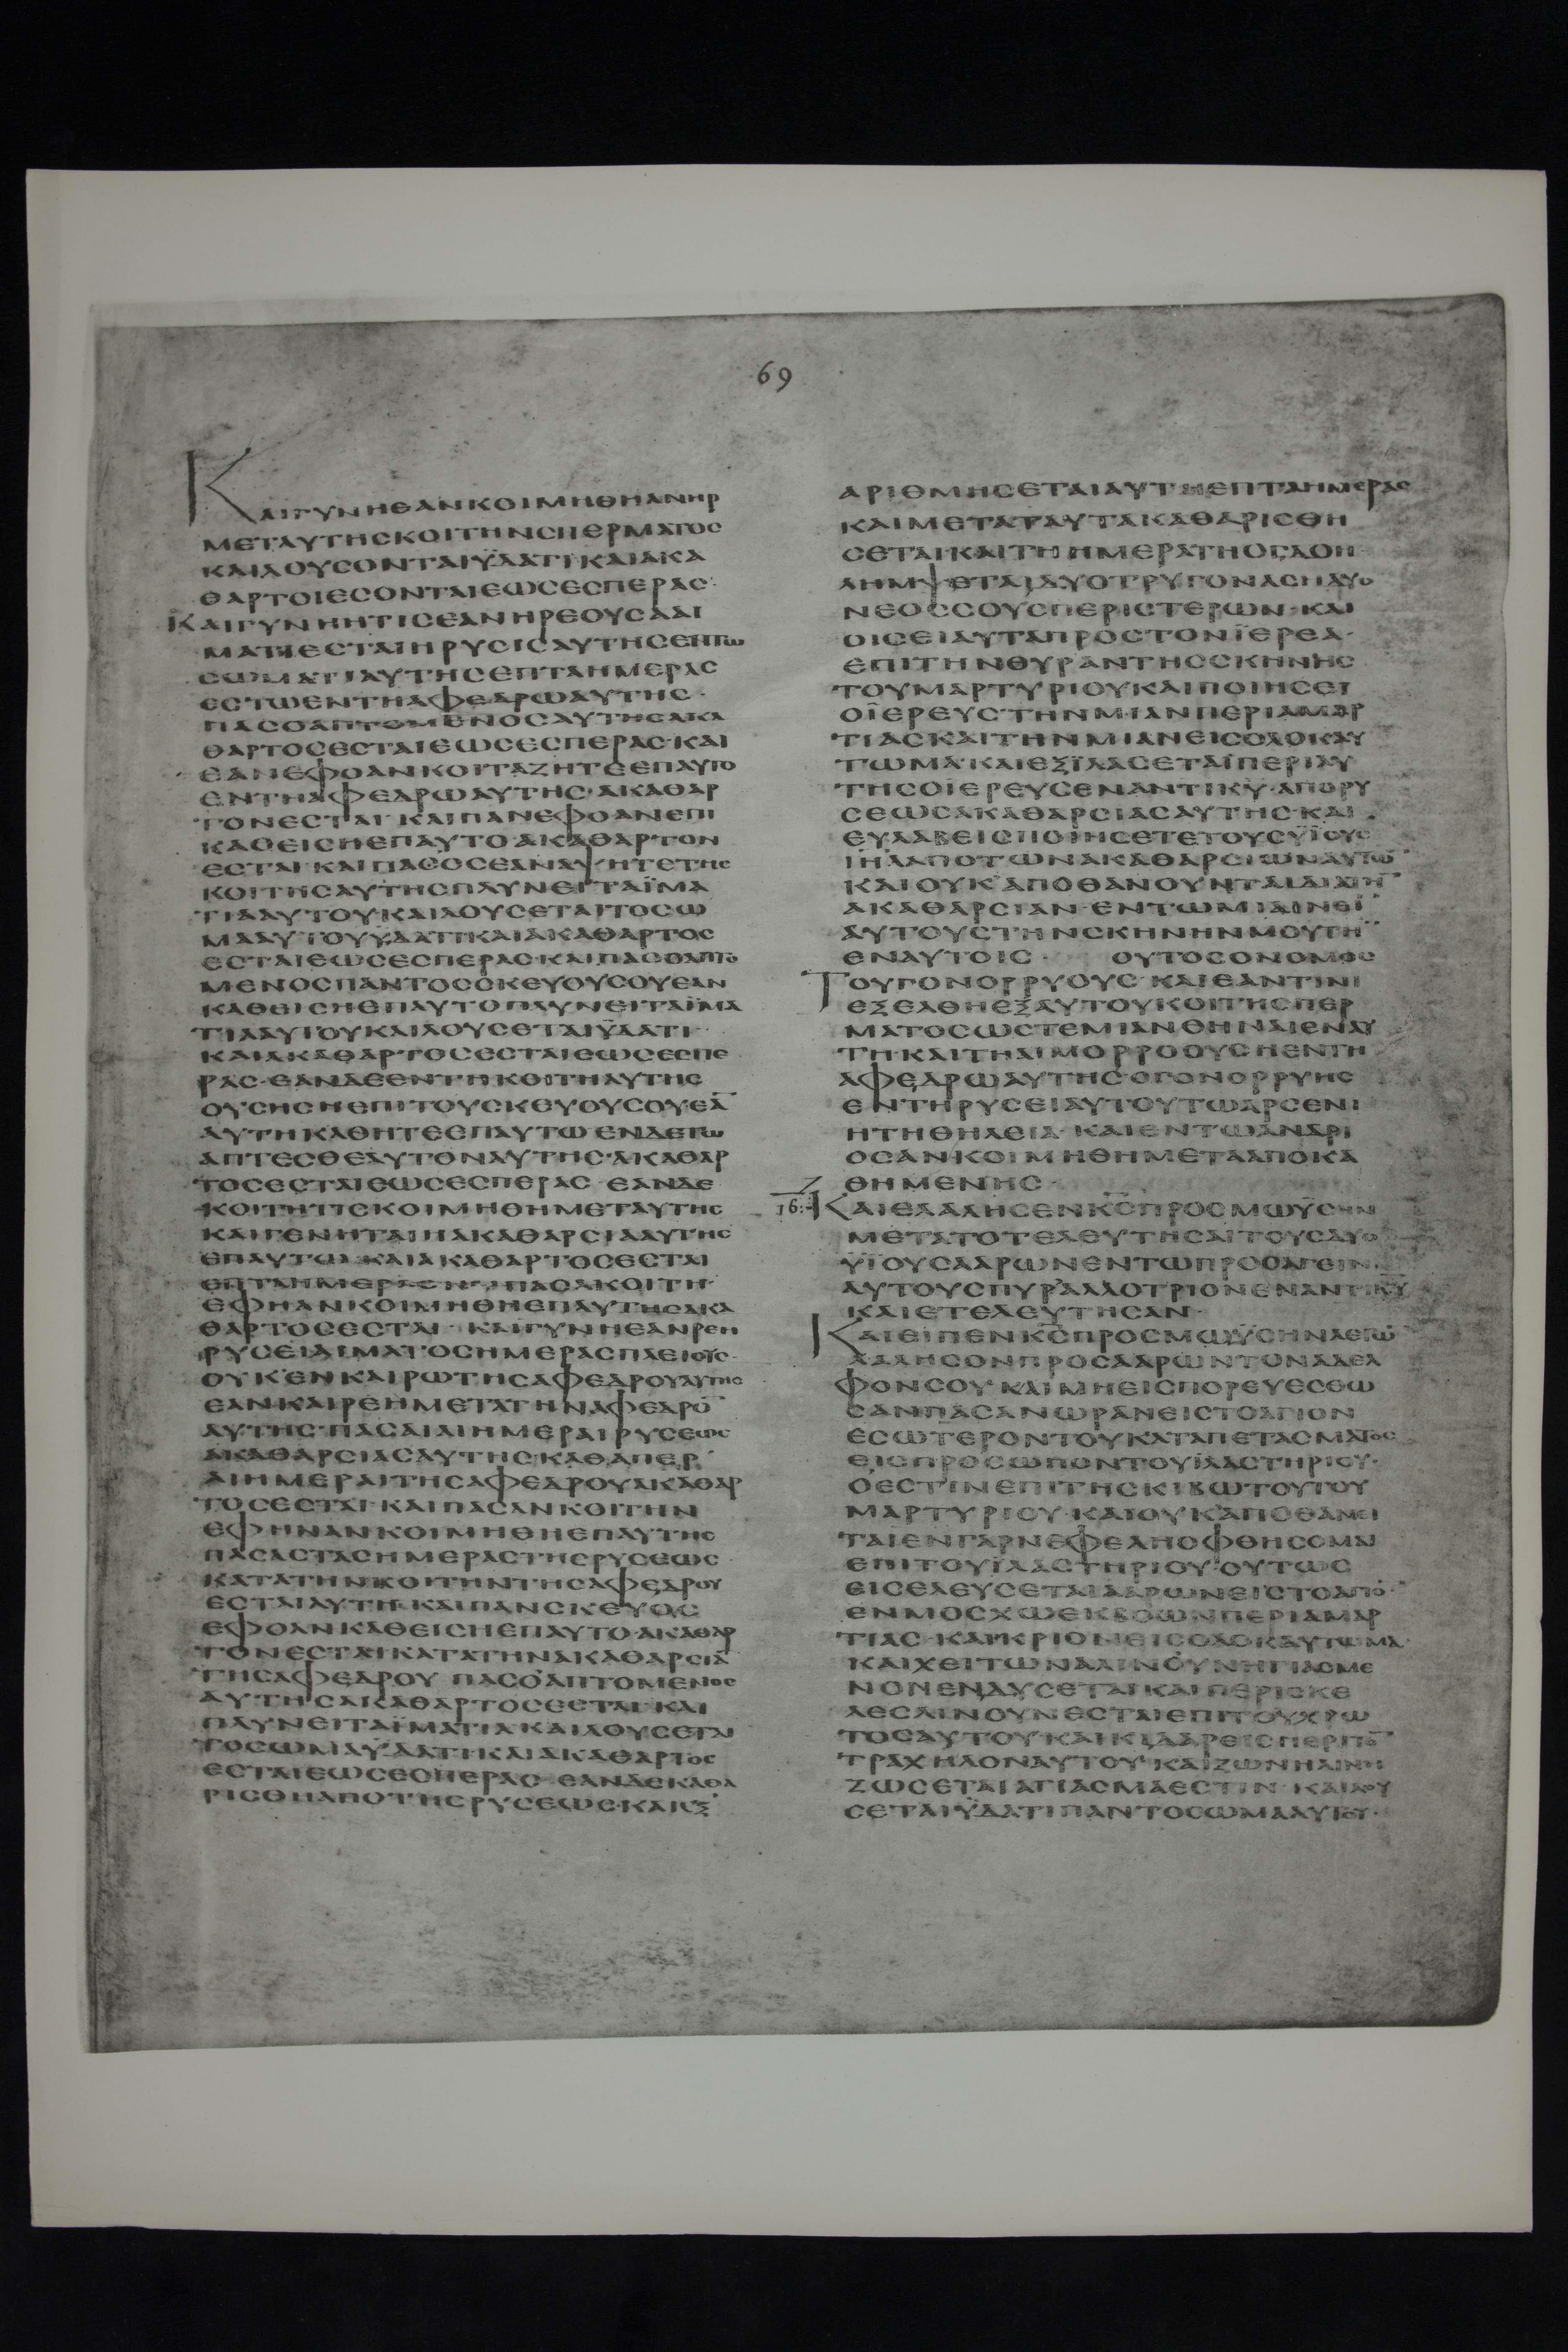 69
ΚΑΙΓΥΝΗΕΑΝΚΟΙΜΗΘΗΑΝΗΡ
ΜΕΤΑΥΤΗΣΚΟΙΤΗΝΣΠΕΡΜΑΤΟΣ
ΚΑΙΛΟΥΣΟΝΤΑΙΫΔΑΤΙΚΑΙΑΚΑ
ΘΑΡΤΟΙΕΣΟΝΤΑΙΕΩΣΕΣΠΕΡΑΣ·
ΚΑΙΓΥΝΗΗΤΙΣΕΑΝΗΡΕΟΥΣΑΑΙ
ΜΑΤΙΕΣΤΑΙΗΡΥΣΙΣΑΥΤΗΣΕΝΤΩ
ΣΩΜΑΤΙΑΥΤΗΣΕΠΤΑΗΜΕΡΑΣ
ΕΣΤΩΕΝΤΗΑΦΕΔΡΩΑΥΤΗΣ·
ΠΑΣΟΑΠΤΟΜΕΝΟΣΑΥΤΗΣΑΚΑ
ΘΑΡΤΟΣΕΣΤΑΙΕΩΣΕΣΠΕΡΑΣ·ΚΑΙ
ΕΑΝΕΦΟΑΝΚΟΙΤΑΖΗΤΕΕΠΑΥΤΟ
ΕΝΤΗΑΦΕΔΡΩΑΥΤΗΣ·ΑΚΑΘΑΡ
ΤΟΝΕΣΤΑΙ·ΚΑΙΠΑΝΕΦΟΑΝΕΠΙ
ΚΑΘΕΙΣΗΕΠΑΥΤΟΑΚΑΘΑΡΤΟΝ
ΕΣΤΑΙ·ΚΑΙΠΑΣΟΣΕΑΝΑΨΗΤΕΤΗΣ
ΚΟΙΤΗΣΑΥΤΗΣΠΛΥΝΕΙΤΑΪΜΑ
ΤΙΑΑΥΤΟΥΚΑΙΛΟΥΣΕΤΑΙΤΟΣΩ
ΜΑΑΥΤΟΥΫΔΑΤΙΚΑΙΑΚΑΘΑΡΤΟΣ
ΕΣΤΑΙΕΩΣΕΣΠΕΡΑΣ·ΚΑΙΠΑΣΟΑΠΤΟ
ΜΕΝΟΣΠΑΝΤΟΣΣΚΕΥΟΥΣΟΥΕΑΝ
ΚΑΘΕΙΣΗΕΠΑΥΤΟΠΛΥΝΕΙΤΑΪΜΑ
ΤΙΑΑΥΤΟΥΚΑΙΛΟΥΣΕΤΑΙΫΔΑΤΙ
ΚΑΙΑΚΑΘΑΡΤΟΣΕΣΤΑΙΕΩΣΕΣΠΕ
ΡΑΣ·ΕΑΝΔΕΕΝΤΗΚΟΙΤΗΑΥΤΗΣ
ΟΥΣΗΣΗΕΠΙΤΟΥΣΚΕΥΟΥΣΟΥΕΑ̅
ΑΥΤΗΚΑΘΗΤΕΕΠΑΥΤΩΕΝΔΕΤΩ
ΑΠΤΕΣΘΕΑΥΤΟΝΑΥΤΗΣ·ΑΚΑΘΑΡ
ΤΟΣΕΣΤΑΙΕΩΣΕΣΠΕΡΑΣ·ΕΑΝΔΕ
ΚΟΙΤΗΤΙΣΚΟΙΜΗΘΗΜΕΤΑΥΤΗΣ
ΚΑΙΓΕΝΗΤΑΙΗΑΚΑΘΑΡΣΙΑΑΥΤΗΣ
ΕΠΑΥΤΩ·ΚΑΙΑΚΑΘΑΡΤΟΣΕΣΤΑΙ
ΕΠΤΑΗΜΕΡΑΣ ΠΑΣΑΚΟΙΤΗ
ΕΦΗΑΝΚΟΙΜΗΘΗΕΠΑΥΤΗΣΑΚΑ
ΘΑΡΤΟΣΕΣΤΑΙ·ΚΑΙΓΥΝΗΕΑΝΡΕΗ
ΡΥΣΕΙΑΙΜΑΤΟΣΗΜΕΡΑΣΠΛΕΙΟΥΣ·
ΟΥΚΕΝΚΑΙΡΩΤΗΣΑΦΕΔΡΟΥΑΥΤΗΣ
ΕΑΝΚΑΙΡΕΗΜΕΤΑΤΗΝΑΦΕΔΡΟ̅
ΑΥΤΗΣ·ΠΑΣΑΙΑΙΗΜΕΡΑΙΡΥΣΕΩΣ
ΑΚΑΘΑΡΣΙΑΣΑΥΤΗΣΚΑΘΑΠΕΡ
ΑΙΗΜΕΡΑΙΤΗΣΑΦΕΔΡΟΥΑΚΑΘΑΡ
ΤΟΣΕΣΤΑΙ·ΚΑΙΠΑΣΑΝΚΟΙΤΗΝ
ΕΦΗΝΑΝΚΟΙΜΗΘΗΕΠΑΥΤΗΣ
ΠΑΣΑΣΤΑΣΗΜΕΡΑΣΤΗΣΡΥΣΕΩΣ·
ΚΑΤΑΤΗΝΚΟΙΤΗΝΤΗΣΑΦΕΔΡΟΥ
ΕΣΤΑΙΑΥΤΗ·ΚΑΙΠΑΝΣΚΕΥΟΣ
ΕΦΟΑΝΚΑΘΕΙΣΗΕΠΑΥΤΟ·ΑΚΑΘΑΡ
ΤΟΝΕΣΤΑΙΚΑΤΑΤΗΝΑΚΑΘΑΡΣΙΑ̅
ΤΗΣΑΦΕΔΡΟΥ ΠΑΣΟΑΠΤΟΜΕΝΟΣ
ΑΥΤΗΣΑΚΑΘΑΡΤΟΣΕΣΤΑΙ·ΚΑΙ
ΠΛΥΝΕΙΤΑΪΜΑΤΙΑΚΑΙΛΟΥΣΕΤΑΙ
ΤΟΣΩΜΑΫΔΑΤΙΚΑΙΑΚΑΘΑΡΤΟΣ
ΕΣΤΑΙΕΩΣΕΣΠΕΡΑΣ·ΕΑΝΔΕΚΑΘΑ
ΡΙΣΘΗΑΠΟΤΗΣΡΥΣΕΩΣ·ΚΑΙΕΞ
ΑΡΙΘΜΗΣΕΤΑΙΑΥΤΗΕΠΤΑΗΜΕΡΑΣ
ΚΑΙΜΕΤΑΤΑΥΤΑΚΑΘΑΡΙΣΘΗ
ΣΕΤΑΙ·ΚΑΙΤΗΗΜΕΡΑΤΗΟΓΔΟΗ
ΛΗΜΨΕΤΑΙΔΥΟΤΡΥΓΟΝΑΣΗΔΥΟ
ΝΕΟΣΣΟΥΣΠΕΡΙΣΤΕΡΩΝ·ΚΑΙ
ΟΙΣΕΙΑΥΤΑΠΡΟΣΤΟΝΪΕΡΕΑ·
ΕΠΙΤΗΝΘΥΡΑΝΤΗΣΣΚΗΝΗΣ
ΤΟΥΜΑΡΤΥΡΙΟΥΚΑΙΠΟΙΗΣΕΙ
ΟΪΕΡΕΥΣΤΗΝΜΙΑΝΠΕΡΙΑΜΑΡ
ΤΙΑΣΚΑΙΤΗΝΜΙΑΝΕΙΣΟΛΟΚΑΥ
ΤΩΜΑ·ΚΑΙΕΞΪΛΑΣΕΤΑΙΠΕΡΙΑΥ
ΤΗΣΟΪΕΡΕΥΣΕΝΑΝΤΙΚ̅Υ̅·ΑΠΟΡΥ
ΣΕΩΣΑΚΑΘΑΡΣΙΑΣΑΥΤΗΣ·ΚΑΙ
ΕΥΛΑΒΕΙΣΠΟΙΗΣΕΤΕΤΟΥΣΫΪΟΥΣ
Ι̅Η̅Λ̅ΑΠΟΤΩΝΑΚΑΘΑΡΣΙΩΝΑΥΤΩ̅
ΚΑΙΟΥΚΑΠΟΘΑΝΟΥΝΤΑΙΔΙΑΤΗ̅
ΑΚΑΘΑΡΣΙΑΝ·ΕΝΤΩΜΙΑΙΝΕΙ̅
ΑΥΤΟΥΣΤΗΝΣΚΗΝΗΝΜΟΥΤΗ̅
ΕΝΑΥΤΟΙΣ· ΟΥΤΟΣΟΝΟΜΟΣ
ΤΟΥΓΟΝΟΡΡΥΟΥΣ·ΚΑΙΕΑΝΤΙΝΙ
ΕΞΕΛΘΗΕΞΑΥΤΟΥΚΟΙΤΗΣΠΕΡ
ΜΑΤΟΣΩΣΤΕΜΙΑΝΘΗΝΑΙΕΝΑΥ
ΤΗ·ΚΑΙΤΗΑΙΜΟΡΡΟΟΥΣΗΕΝΤΗ
ΑΦΕΔΡΩΑΥΤΗΣ·ΟΓΟΝΟΡΡΥΗΣ
ΕΝΤΗΡΥΣΕΙΑΥΤΟΥΤΩΑΡΣΕΝΙ
ΗΤΗΘΗΛΕΙΑ·ΚΑΙΕΝΤΩΑΝΔΡΙ
ΟΣΑΝΚΟΙΜΗΘΗΜΕΤΑΑΠΟΚΑ
ΘΗΜΕΝΗΣ·
16: ΚΑΙΕΛΑΛΗΣΕΝΚ̅Σ̅ΠΡΟΣΜΩΫΣΗΝ
ΜΕΤΑΤΟΤΕΛΕΥΤΗΣΑΙΤΟΥΣΔΥΟ
ΫΪΟΥΣΑΑΡΩΝΕΝΤΩΠΡΟΣΑΓΕΙΝ
ΑΥΤΟΥΣΠΥΡΑΛΛΟΤΡΙΟΝΕΝΑΝΤΙΚ̅Υ̅
ΚΑΙΕΤΕΛΕΥΤΗΣΑΝ·
ΚΑΙΕΙΠΕΝΚ̅Σ̅ΠΡΟΣΜΩΫΣΗΝΛΕΓΩ̅
ΛΑΛΗΣΟΝΠΡΟΣΑΑΡΩΝΤΟΝΑΔΕΛ
ΦΟΝΣΟΥΚΑΙΜΗΕΙΣΠΟΡΕΥΕΣΘΩ
ΣΑΝΠΑΣΑΝΩΡΑΝΕΙΣΤΟΑΓΙΟΝ
ΕΣΩΤΕΡΟΝΤΟΥΚΑΤΑΠΕΤΑΣΜΑΤΟΣ
ΕΙΣΠΡΟΣΩΠΟΝΤΟΥΪΛΑΣΤΗΡΙΟΥ·
ΟΕΣΤΙΝΕΠΙΤΗΣΚΙΒΩΤΟΥΤΟΥ
ΜΑΡΤΥΡΙΟΥ·ΚΑΙΟΥΚΑΠΟΘΑΝΕΙ
ΤΑΙΕΝΓΑΡΝΕΦΕΛΗΟΦΘΗΣΟΜΑΙ
ΕΠΙΤΟΥΪΛΑΣΤΗΡΙΟΥ·ΟΥΤΩΣ
ΕΙΣΕΛΕΥΣΕΤΑΙΑΑΡΩΝΕΙΣΤΟΑΓΙΟ̅
ΕΝΜΟΣΧΩΕΚΒΟΩΝΠΕΡΙΑΜΑΡ
ΤΙΑΣ·ΚΑΙΚΡΙΟΝΕΙΣΟΛΟΚΑΥΤΩΜΑ·
ΚΑΙΧΕΙΤΩΝΑΛΙΝΟΥΝΗΓΙΑΣΜΕ
ΝΟΝΕΝΔΥΣΕΤΑΙ·ΚΑΙΠΕΡΙΣΚΕ
ΛΕΣΛΙΝΟΥΝΕΣΤΑΙΕΠΙΤΟΥΧΡΩ
ΤΟΣΑΥΤΟΥ·ΚΑΙΚΙΔΑΡΕΙΣΠΕΡΙΤΟ̅
ΤΡΑΧΗΛΟΝΑΥΤΟΥ·ΚΑΙΖΩΝΗΛΙΝΗ
ΖΩΣΕΤΑΙΑΓΙΑΣΜΑΕΣΤΙΝ·ΚΑΙΛΟΥ
ΣΕΤΑΙΫΔΑΤΙΠΑΝΤΟΣΩΜΑΑΥΤΟΥ·